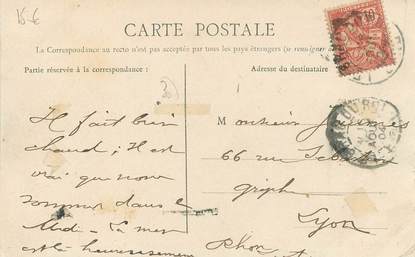 15 €
CARTE POSTALE
La Correspondance au recto n'est pas acceptée par tous les pays étrangers (se renseigner
Partie réservée à la correspondance :
Adresse du destinataire
Il fait bien
chaud ; Il est
vrai que nous
sommes dans le
Midi - La mer
est là heureusement
Monsieur
66 rue
Lyon
Rhône
CARTE POSTALE